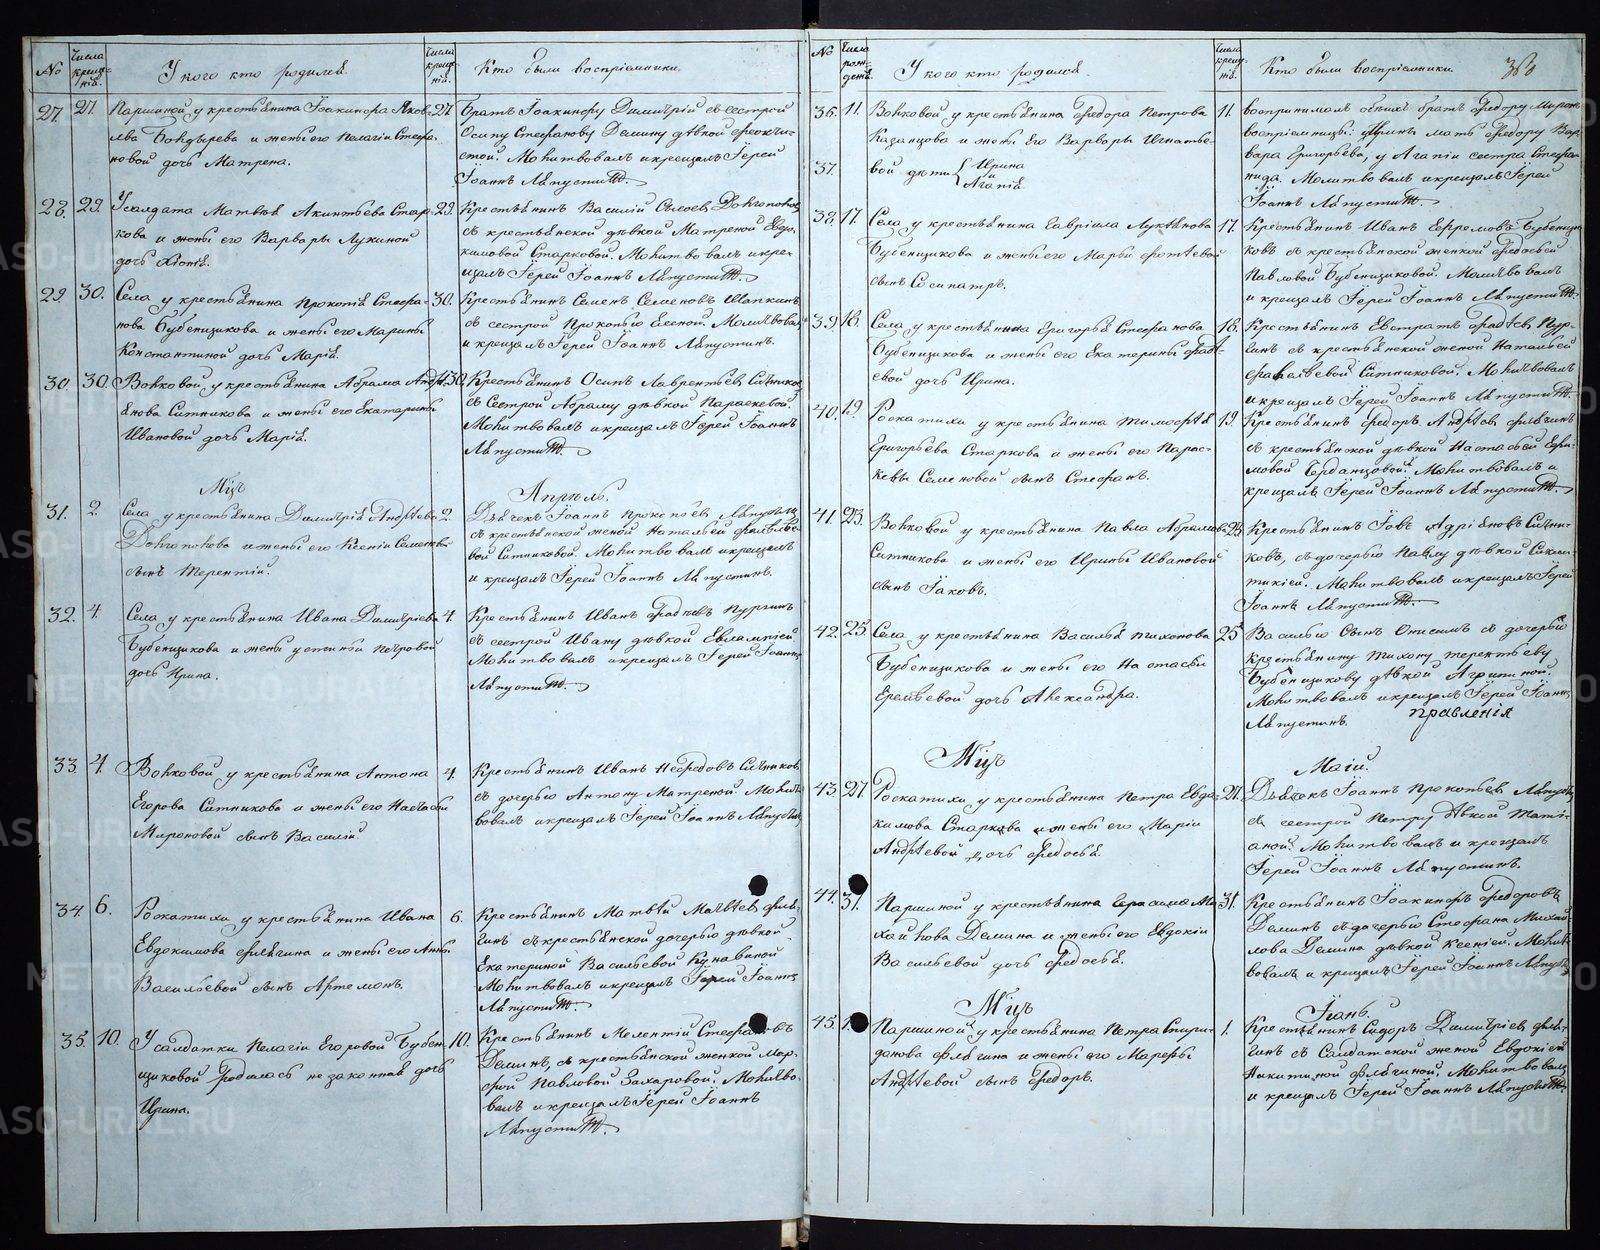 №
Числа
крещенія.
У кого кто родился.
Числа
крещенія.
Кто были воспріемники.
27. 27. Паршиной у крестьянина Іоакинфа Яков-
лева Бондырева и жены его Пелагіи Стефа-
новой дочь Матрена.
27. Братъ Іоакинфу Димитрій съ сестрой
Осипу Стефанову Демину дѣвкой
Молитвовалъ и крещалъ Іерей
Іоаннъ Ляпустинъ.
28. 29. У солдата Матвѣя Акинтьева Стар-
кова и жены его Варвары Лукиной
дочь Хіонія.
29. Крестьянинъ Василій Сысоевъ Долгополовъ
съ крестьянской дѣвкой Матреной Евдо-
кимовой Старковой. Молитвовалъ и кре-
щалъ Іерей Іоаннъ Ляпустинъ.
29. 30. Села у крестьянина Прокопія Стефа-
нова Бубенщикова и жены его Марины
Константиной дочь Марія.
30. Крестьянинъ Семенъ Семеновъ Шапкинъ
съ сестрой Прокопью Еленой. Молитвовалъ
и крещалъ Іерей Іоаннъ Ляпустинъ.
30. 30. Волковой у крестьянина Абрама Андре-
янова Ситникова и жены его Екатерины
Ивановой дочь Марія.
30. Крестьянинъ Осипъ Лаврентьевъ Ситниковъ
съ сестрой Абраму дѣвкой Параскевой.
Молитвовалъ и крещалъ Іерей Іоаннъ
Ляпустинъ.
Мцъ
Апрѣль.
31. 2. Села у крестьянина Димитрія Андрѣева
Долгополова и жены его Ксеніи Семеновой
сынъ Терентій.
2. Дьячекъ Іоаннъ Прокопьевъ Ляпустинъ
съ крестьянской женой Натальей
вой Ситниковой. Молитвовалъ и крещалъ
и крещалъ Іерей Іоаннъ Ляпустинъ.
32. 4. Села у крестьянина Ивана Димитріева
Бубенщикова и жены Устиньи Петровой
дочь Ирина.
4. Крестьянинъ Иванъ Фадѣевъ Пургинъ
съ сестрой Ивану дѣвкой Евлампіей.
Молитвовалъ и крещалъ Іерей Іоаннъ
Ляпустинъ.
33. 4. Волковой у крестьянина Антона
Егорова Ситникова и жены его Настасьи
Мироновой сынъ Василій.
4. Крестьянинъ Иванъ Нефедовъ Ситниковъ
съ дочерью Антону Матреной. Молит-
вовалъ и крещалъ Іерей Іоаннъ Ляпустинъ
34. 6. Роскатихи у крестьянина Ивана
Евдокимова Флягина и жены его Анны
Васильевой сынъ Артемонъ.
6. Крестьянинъ Матвѣй Матвѣевъ Фля-
гинъ съ крестьянской дочерью дѣвкой
Екатериной Васильевой Кунавиной
Молитвовалъ и крещалъ Іерей Іоаннъ
Ляпустинъ.
35. 10. У солдатки Пелагіи Егоровой Бубен-
щиковой родилась незаконная дочь
Ирина.
10. Крестьянинъ Мелентій Стефановъ
Деминъ, съ крестьянской женкой Мар-
фой Павловой Захаровой. Молитво-
валъ и крещалъ Іерей Іоаннъ
Ляпустинъ.
№
Числа
рожденія.
У кого кто родился.
Числа
крещенія.
Кто были воспріемники.
36. 11. Волковой у крестьянина Федора Петрова
Казанцова и жены его Варвары Игнатье-
37. вой дѣти Ирина
и
Агапія.
11. воспринималъ обѣихъ братъ Федору Миронъ
воспріемницы: Иринѣ мать Федору Вар-
вара Григорьева, у Агапіи сестра Стефа-
нида. Молитвовалъ и крещалъ Іерей
Іоаннъ Ляпустинъ.
38. 17. Села у крестьянина Гавріила Лукьянова
Бубенщикова и жены его Марьи Фотѣевой
сынъ Сосипатръ.
17. Крестьянинъ Иванъ Ефремовъ Бубенщи-
ковъ съ крестьянской женкой Федосьей
Павловой Бубенщиковой. Молитвовалъ
и крещалъ Іерей Іоаннъ Ляпустинъ.
39. 18. Села у крестьянина Григорья Стефанова
Бубенщикова и жены его Екатерины Фадѣ-
евой дочь Ирина.
18. Крестьянинъ Евстратъ Фадѣевъ Пур-
гинъ съ крестьянской женой Натальей
Ситниковой. Молитвовалъ
и крещалъ Іерей Іоаннъ Ляпустинъ.
40. 19. Роскатихи у крестьянина Тимофѣя
Григорьева Старкова и жены его Парас-
кевы Семеновой сынъ Стефанъ.
19. Крестьянинъ Федоръ Андрѣевъ Флягинъ
съ крестьянской дѣвкой Настасьей Ефи-
мовой Берданцовой. Молитвовалъ и
крещалъ Іерей Іоаннъ Ляпустинъ.
41. 23. Волковой у крестьянина Павла Абрамова
Ситникова и жены его Ирины Ивановой
сынъ Іаковъ.
23. Крестьянинъ Іовъ Адріановъ Ситни-
ковъ, съ дочерью Павлу дѣвкой Синкли-
тикіей. Молитвовалъ и крещалъ Іерей
Іоаннъ Ляпустинъ.
42. 25. Села у крестьянина Василья Тихонова
Бубенщикова и жены его Настасьи
Еремѣевой дочь Александра.
25. Василью сынъ Онисимъ съ дочерью
крестьянину Тихону Терентьеву
Бубенщикову дѣвкой Агрипиной.
Молитвовалъ и крещалъ Іерей Іоаннъ
Ляпустинъ. правленія
Мцъ
Маій.
43. 27. Роскатихи у крестьянина Петра Евдо-
кимова Старкова и жены его Маріи
Андрѣевой дочь Федосья.
27. Дьячокъ Іоаннъ Прокопьевъ Ляпустинъ
съ сестрой Петру дѣвкой Тати-
аной. Молитвовалъ и крещалъ
Іерей Іоаннъ Ляпустинъ.
44. 31. Паршиной у крестьянина Герасима Ми-
хайлова Демина и жены его Евдокіи
Васильевой дочь Федосья.
31. Крестьянинъ Іоакинфъ Федоровъ
Деминъ съ дочерью Стефана Михай-
лова Демина дѣвкой Ксеніей. Молит-
вовалъ и крещалъ Іерей Іоаннъ Ляпустинъ
Мцъ
Іюнь.
45. 1. Паршиной у крестьянина Петра Спири-
данова Флягина и жены его Марфы
Андрѣевой сынъ Федоръ.
1. Крестьянинъ Сидоръ Димитріевъ Фля-
гинъ съ Солдатской женой Евдокіей
Никитиной Флягиной. Молитвовалъ
и крещалъ Іерей Іоаннъ Ляпустинъ.
METRIKI.GASO-URAL.RU